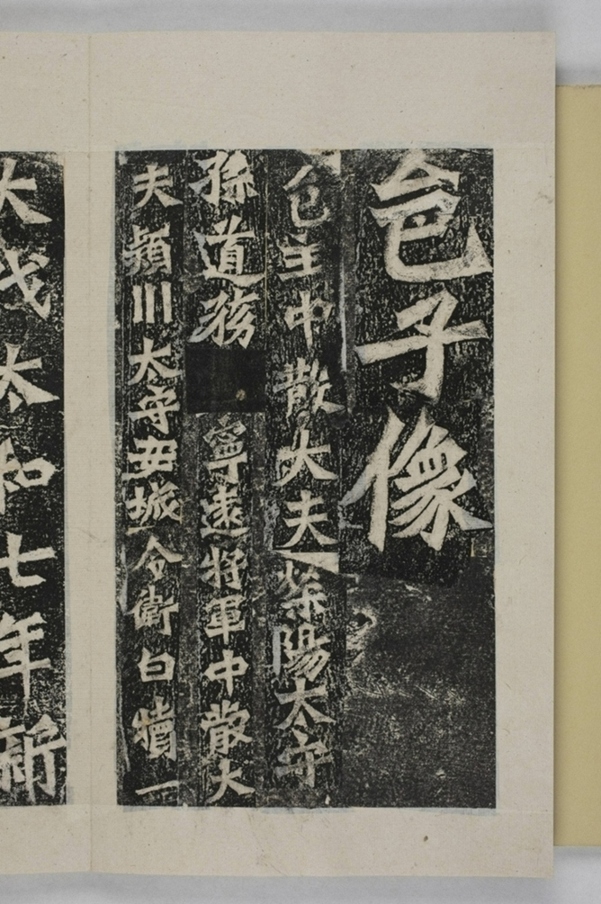 邑子像
邑主中散大夫滎陽太守
孫道務　寧遠將軍中散大
夫潁川太守安城令衛白犢一
大代太和七年新